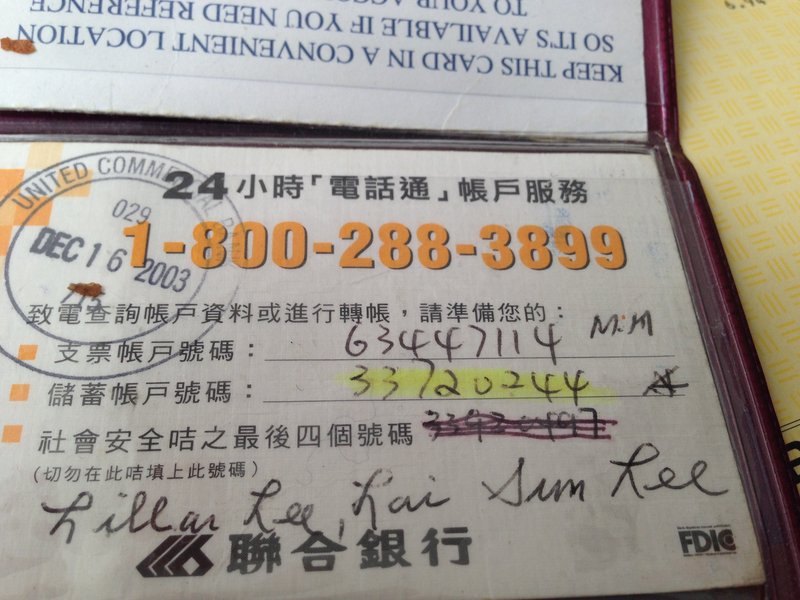 KEEP THIS CARD IN A CONVENIENT LOCATION
SO IT'S AVAILABLE IF YOU NEED REFERENCE
TO YOUR
UNITED COMMERCIAL
029
DEC 16 2003
24小時「電話通」帳戶服務
1-800-288-3899
致電查詢帳戶資料或進行轉帳，請準備您的：
支票帳戶號碼： 63447114 M.M
儲蓄帳戶號碼： 33720244
社會安全咭之最後四個號碼
(切勿在此咭填上此號碼)
Lillan Lee, Kai Sum Lee
聯合銀行
FDIC